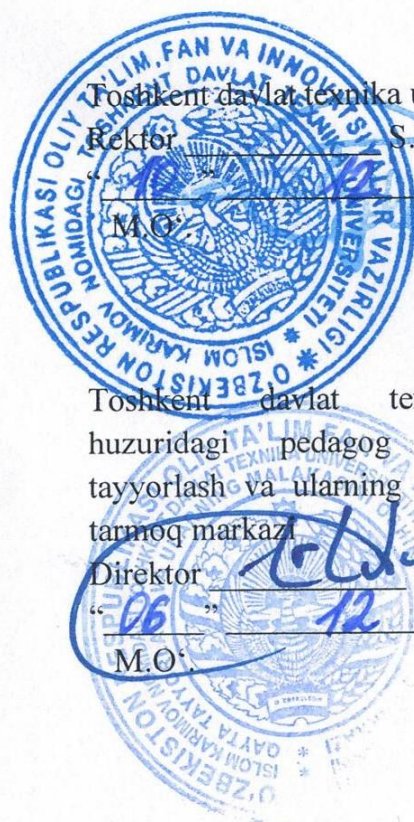 Toshkent davlat texnika u
Rektor S.
“ 10 ” 12
M.O‘.
O‘ZBEKISTON RESPUBLIKASI OLIY TA’LIM, FAN VA INNOVATSIYALAR VAZIRLIGI
ISLOM KARIMOV NOMIDAGI TOSHKENT DAVLAT TEXNIKA UNIVERSITETI
Toshkent davlat te
huzuridagi pedagog
tayyorlash va ularning
tarmoq markazi
Direktor
“ 06 ” 12
M.O‘.